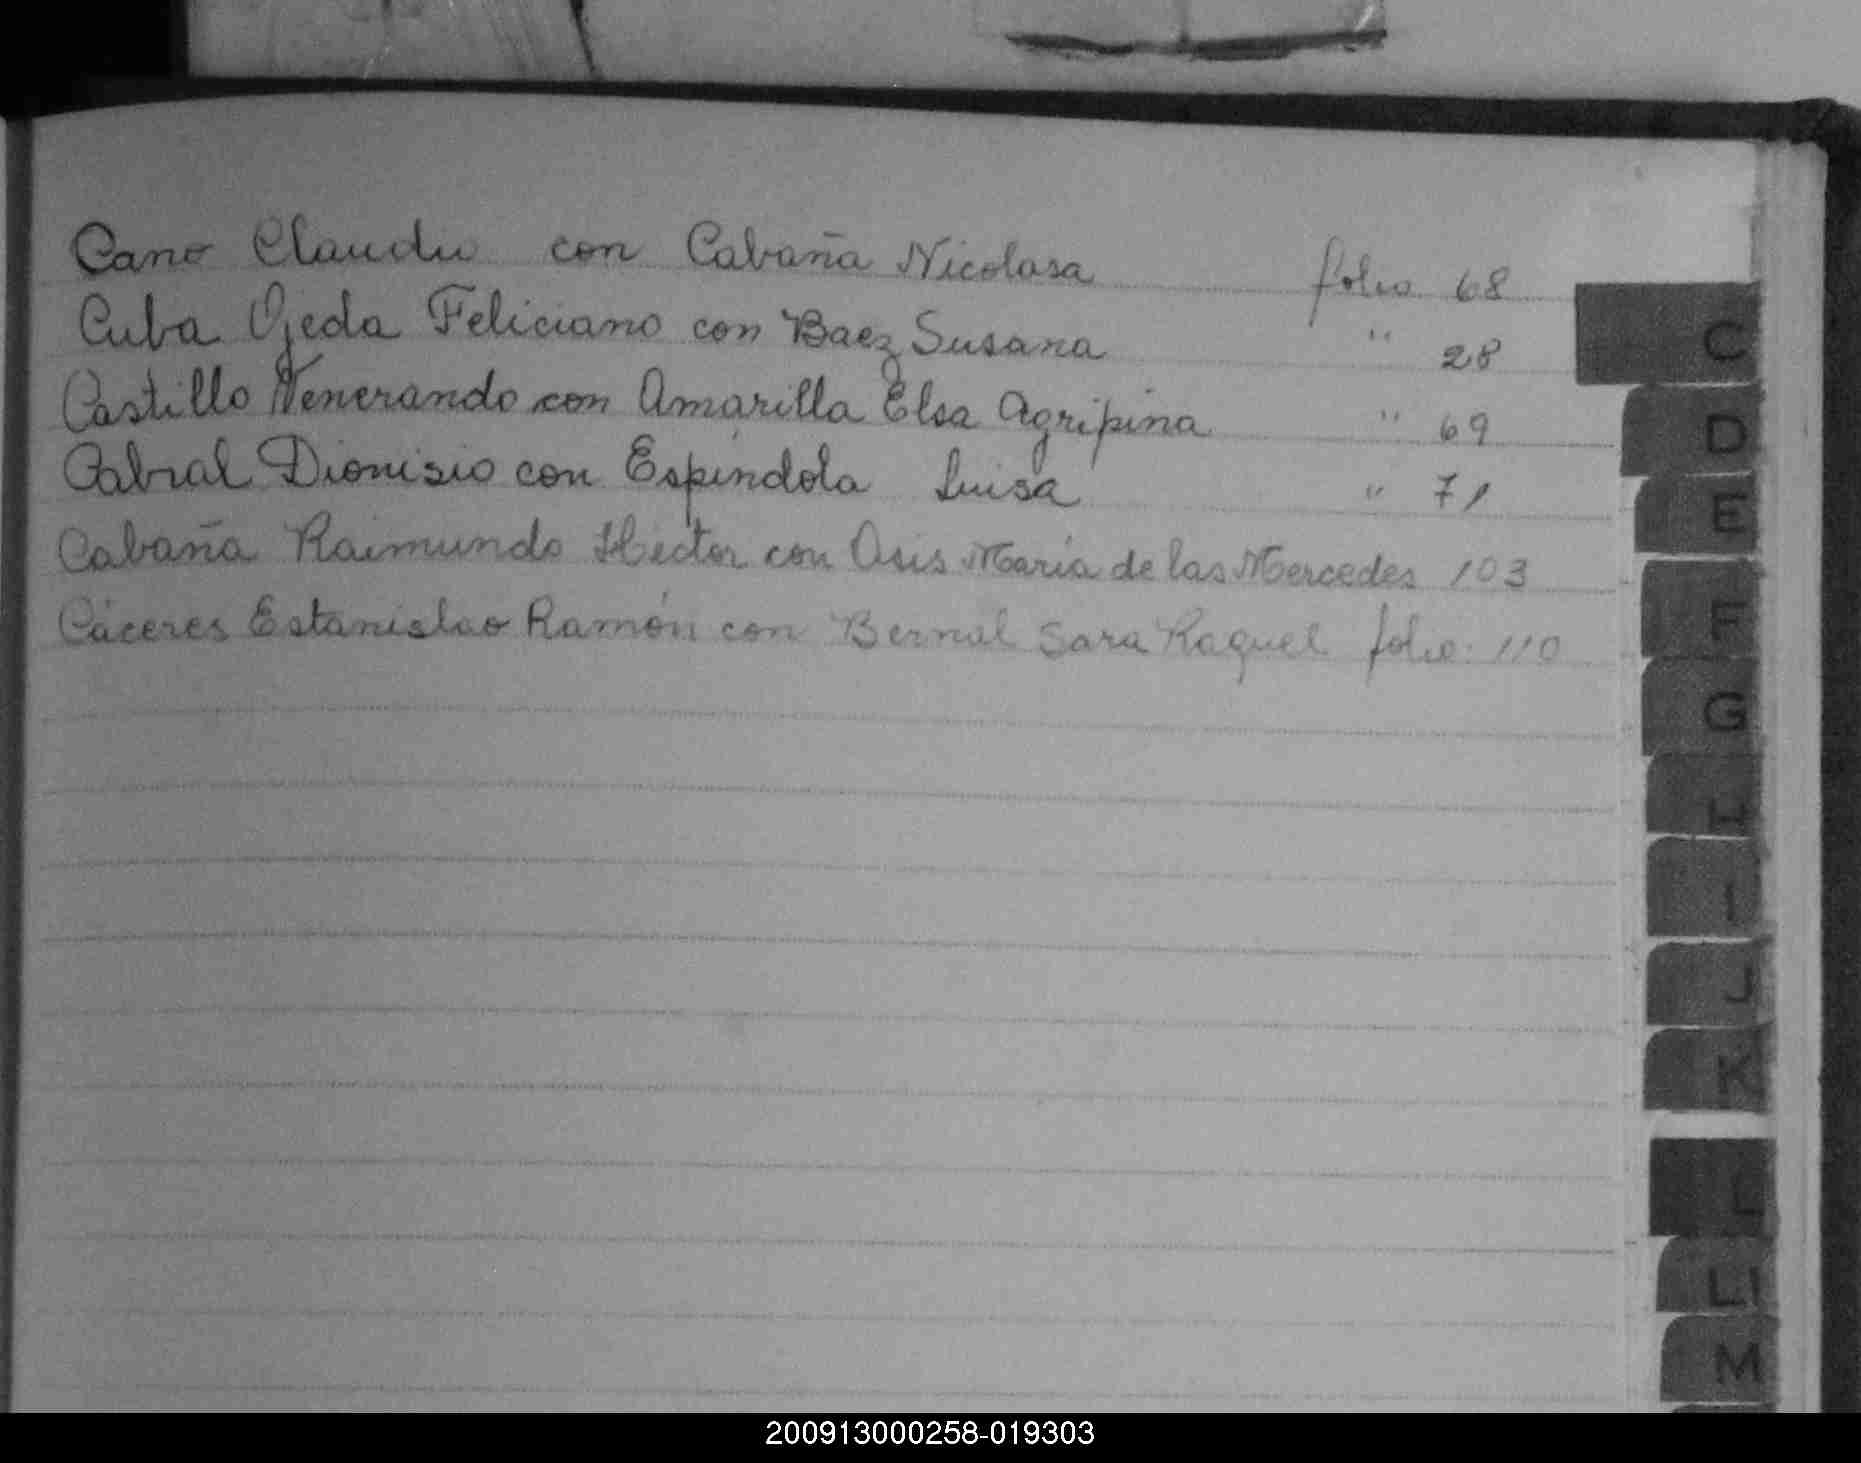 Cano Claudio con Cabaña Nicolasa folio 68
Cuba Ojeda Feliciano con Baez Susana " 28
Castillo Venerando con Amarilla Elsa Agripina " 69
Cabral Dionisio con Espíndola Luisa " 71
Cabaña Raimundo Héctor con Asis María de las Mercedes 103
Cáceres Estanislao Ramón con Bernal Sara Raquel folio 110
C
D
E
F
G
H
I
J
K
L
Ll
M
200913000258-019303